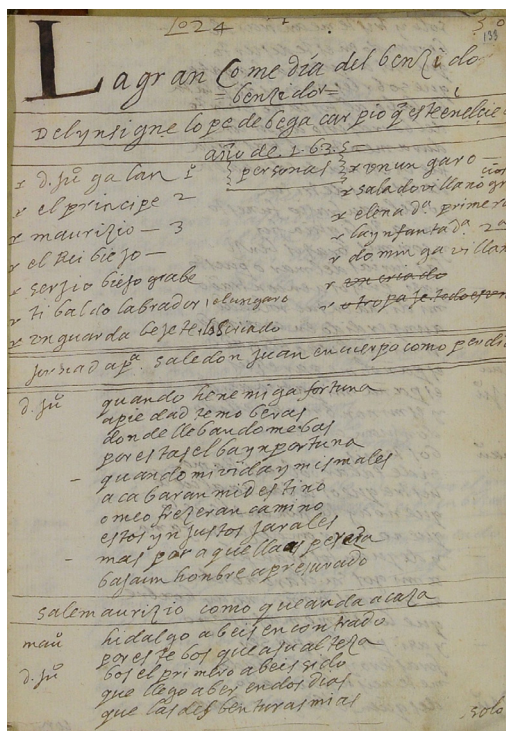 Lº 24
50
133
La gran Comedia del benzido
= benzedor =
Delynsigne lope de bega carpio q̃ esteenelçie
año de 1635 —
x d. Juº galan 1º
personas
x el principe 2
x maurizio — 3
x el Rei biejo —
x serjio biejo grabe
x tibaldo labrador, elungaro
x vn guarda bejete, los criado
x vn ungaro —
x salado villano gr
x elena dª primera
x la ynfanta dª 2ª
x dominga villan
x vn criado
x otro paje
Jornada pª. sale don Juan en cuerpo como perdi
d. Juº quando henemiga fortuna
apiedad temo beras
donde llebandome bas
por estas el ba ynportuna
– quando mi vida y mis males
acabaran mi destino
o me ofrezeran camino
estos ynjustos jarales
– mas por aquella
baja un honbre apresurado
sale maurizio como que anda a caza
mauº hidalgo abeis encontrado
por este bos que a su alteza
d. Juº bos el primero abeis sido
que llego a ber en dos dias
que las desbenturas mias
solo